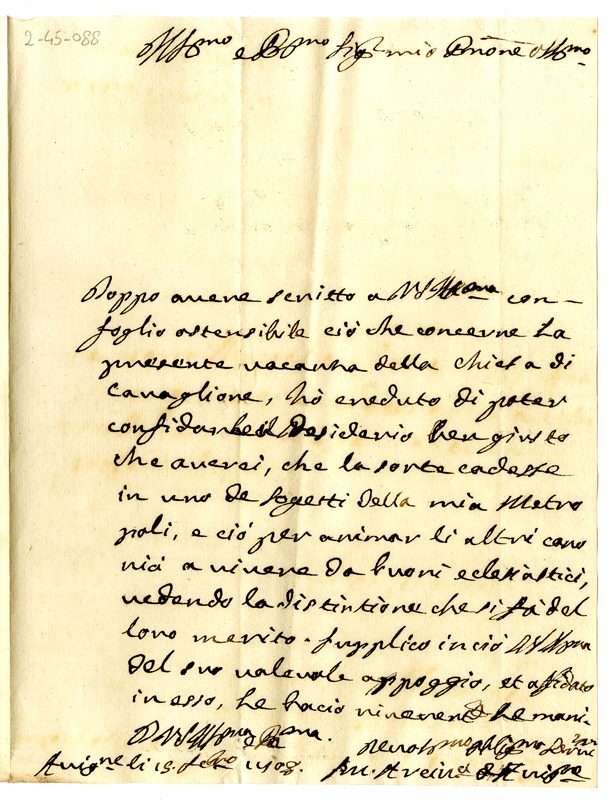 2-45-088
Ill.mo e R.mo Sig.r mio P̃rone oss.mo
Doppo avere scritto a VS Ill.ma con
foglio ostensibile ciò che concerne la
presente vacanza della chiesa di
Cavaglione, hò creduto di poter
confidarle il desiderio ben giusto
che averei, che la sorte cadesse
in uno de sogetti della mia Metro
poli, e ciò per animar li altri cano
nici a vivere da buoni eclesiastici,
vedendo la distintione che si fà del
loro merito. Supplico in ciò VS Ill.ma
del suo valevole appoggio, et affidato
in esso, le bacio riverent.e le mani.
D VS Ill.ma e R.ma
Devot.mo oblig.mo
Avig.ne li 15. feb.ro 1708.
Avig.ne